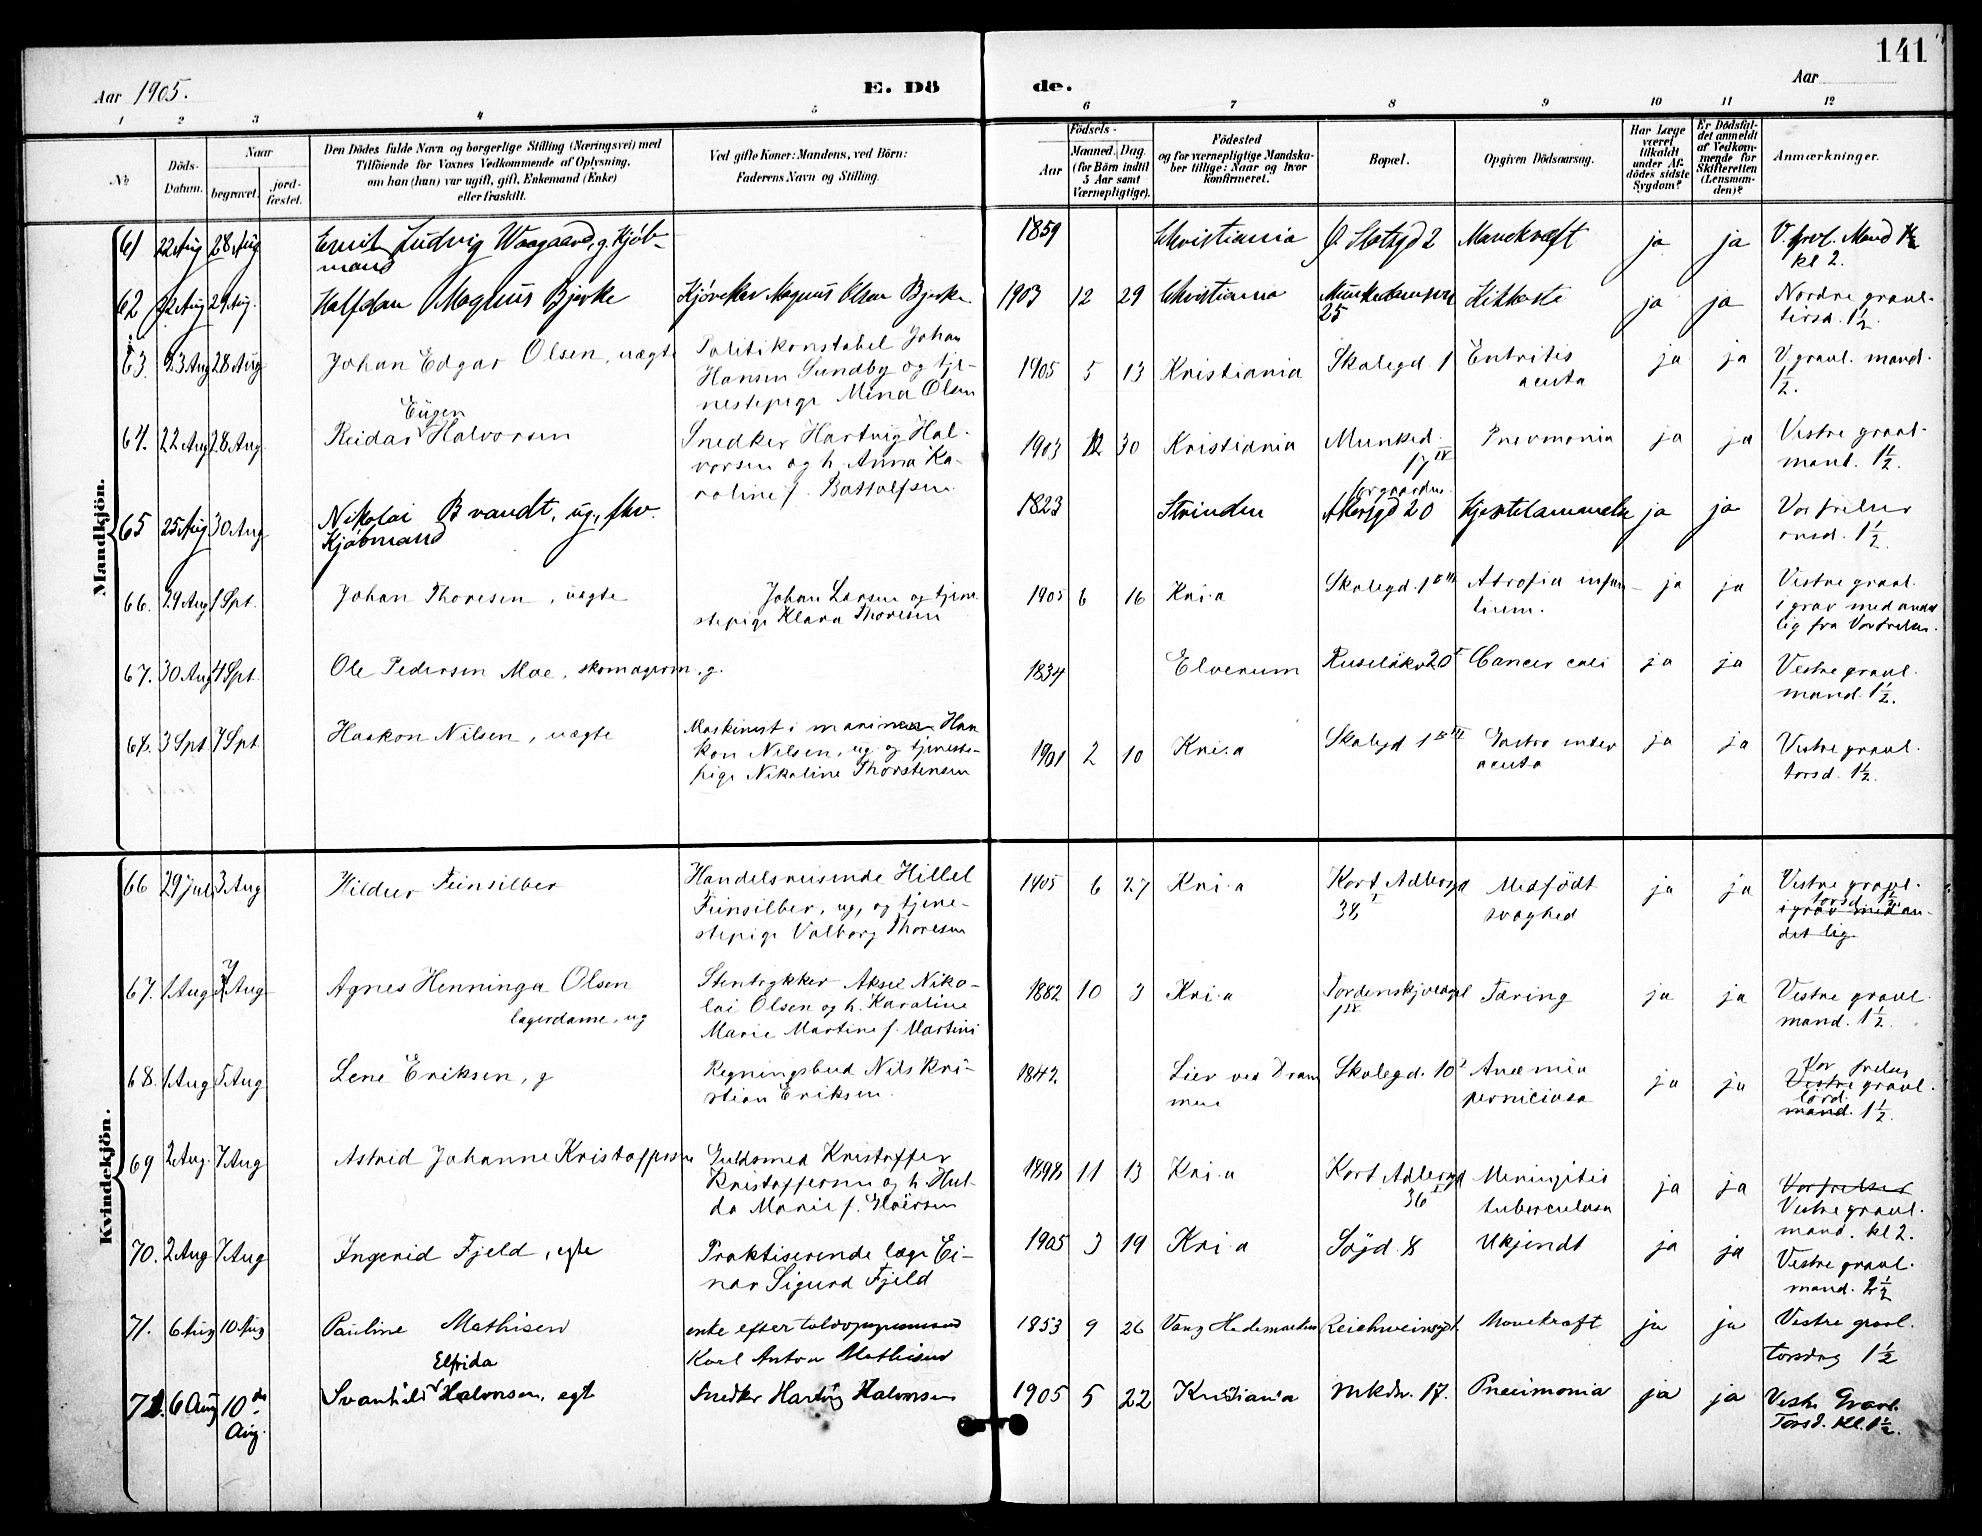 141
Aar 1905.
E. Dö
de.
Aar
1 2 3 4 5 6 7 8 9 10 11 12
№
Döds-
Datum.
Naar
begravet.
jord-
fæstet.
Den Dödes fulde Navn og borgerlige Stilling (Næringsvei) med
Tilföiende for Voxnes Vedkommende af Oplysning,
om han (hun) var ugift, gift, Enkemand (Enke)
eller fraskilt.
Ved gifte Koner: Mandens, ved Börn:
Faderens Navn og Stilling.
Födsels-
Aar
Maaned.
Dag.
(for Börn indtil
5 Aar samt
Værnepligtige).
Födested
og for værnepligtige Mandska-
ber tillige: Naar og hvor
konfirmeret.
Bopæl.
Opgiven Dödsaarsag.
Har Læge
været
tilkaldt
under Af-
dödes sidste
Sygdom?
Er Dödsfal-
det anmeldt
af Vedkom-
mende for
Skifteretten
(Lensman-
den)?
Anmærkninger.
Mandkjön.
61 22 Aug 28 Aug Ludvig Waagaard, g. Kjöb-
mand
1859 Christiania Mavekræft ja ja V. grvl. Mand
kl 2.
62 22 Aug 29 Aug. Halfdan Magnus Bjerke
Magnus Olsen Bjerke
1903 12 29 Christiania Munkedamsvn
25
Kikhoste ja ja Nordre gravl.
tirsd. 1½.
63. 23 Aug 28 Aug Johan Edgar Olsen, uægte
Politikonstabel Johan
Hansen Sundby og tje-
nestepige Mina Olsen
1905 5 13 Kristiania Skolegd. 1 Entritis
acuta
ja ja V. gravl. mand.
1½.
64. 22 Aug 28 Aug Reidar Eugen Halvorsen
Snedker Hartvig Hal-
vorsen og h. Anna Ka-
roline f. Battolfsen
1903 12 30 Kristiania Munked.
17 IV
Pnevmonia ja ja Vestre gravl.
mand. 1½.
65 25 Aug 30 Aug Nikolai Brandt, ug., fhv.
Kjöbmand
1823 Strinden Akersgd 20 Hjertelammelse ja ja Vor frelser
onsd. 1½.
66. 29 Aug 1 Spt. Johan Thoresen, uægte
Johan Larsen og tjene
stepige Klara Thoresen
1905 6 16 Kri.a Skolegd. 1 Atrofia infan-
tium.
ja ja Vestre gravl.
i grav med andet
lig fra Vor frelser.
67. 30 Aug 4 Spt. Ole Pedersen Moe, skomagerm, g.
1834 Elverum Ruselökv 20 I Cancer coli ja ja Vestre gravl.
mand. 1½.
68. 3 Spt. 7 Spt. Haakon Nilsen, uægte
Maskinist i marinen Haa
kon Nilsen, ug og tjeneste-
pige Nikoline Thorstensen
1901 2 10 Kri.a Skolegd 1 Gastro enter
acuta
ja ja Vestre gravl.
torsd. 1½.
Kvindekjön.
66 29 Jul 3 Aug Hildur Feinsilber
Handelsreisende Hillel
Feinsilber, ug, og tjene-
stepige Valborg Thoresen
1905 6 27 Kri.a Kort Adlersgd
38 I
Medfödt
svaghed
ja ja Vestre gravl.
torsd. 1½.
i grav med an-
det lig
67. 1 Aug 7 Aug Agnes Henninga Olsen
lagerdame, ug
Stentrykker Aksel Niko-
lai Olsen og h. Karoline
Marie Martine f. Martini
1882 10 3 Kri.a Tordenskjoldsgd
Tæring ja ja Vestre gravl.
mand. 1½.
68. 1 Aug 5 Aug Lene Eriksen, g
Regningsbud Nils Kri-
stian Eriksen.
1842. Lier ved Dram
men
Skolegd. 10 I Anæmia
perniciosa
ja ja Vor frelser
Vestre gravl.
lörd.
mand. 1½.
69 2 Aug. 7 Aug Astrid Johanne Kristoffersen
Guldsmed Kristoffer
Kristoffersen og h. Hul-
da Marie f.
1898 11 13 Kri.a Kort Adlersgd
36 I
Meningitis
tuberculosa
ja ja Vor frelser
Vestre gravl.
mand. kl 2.
70. 2 Aug 7 Aug Ingerid Fjeld, egte
Praktiserende læge Ei-
nar Sigurd Fjeld
1905 3 19 Kri.a Söjd. 8 Ukjendt ja ja Vestre gravl.
mand. 2½
71. 6 Aug 10 Aug Pauline Mathisen
enke efter toldoppsynsmand
Karl Anton Mathisen
1853 9 26 Vang Hedemarken Reichweinsgd. Mavekræft ja ja Vestre gravl.
torsdag 1½
72. 6 Aug 10de
Aug.
Svanhild Elfrida Halvorsen, egt
Snedker Hartvig Halvorsen
1905 5 22 Kristiania Mkdv. 17. Pneumonia ja ja Vestre Gravl.
Torsd. Kl. 1½.